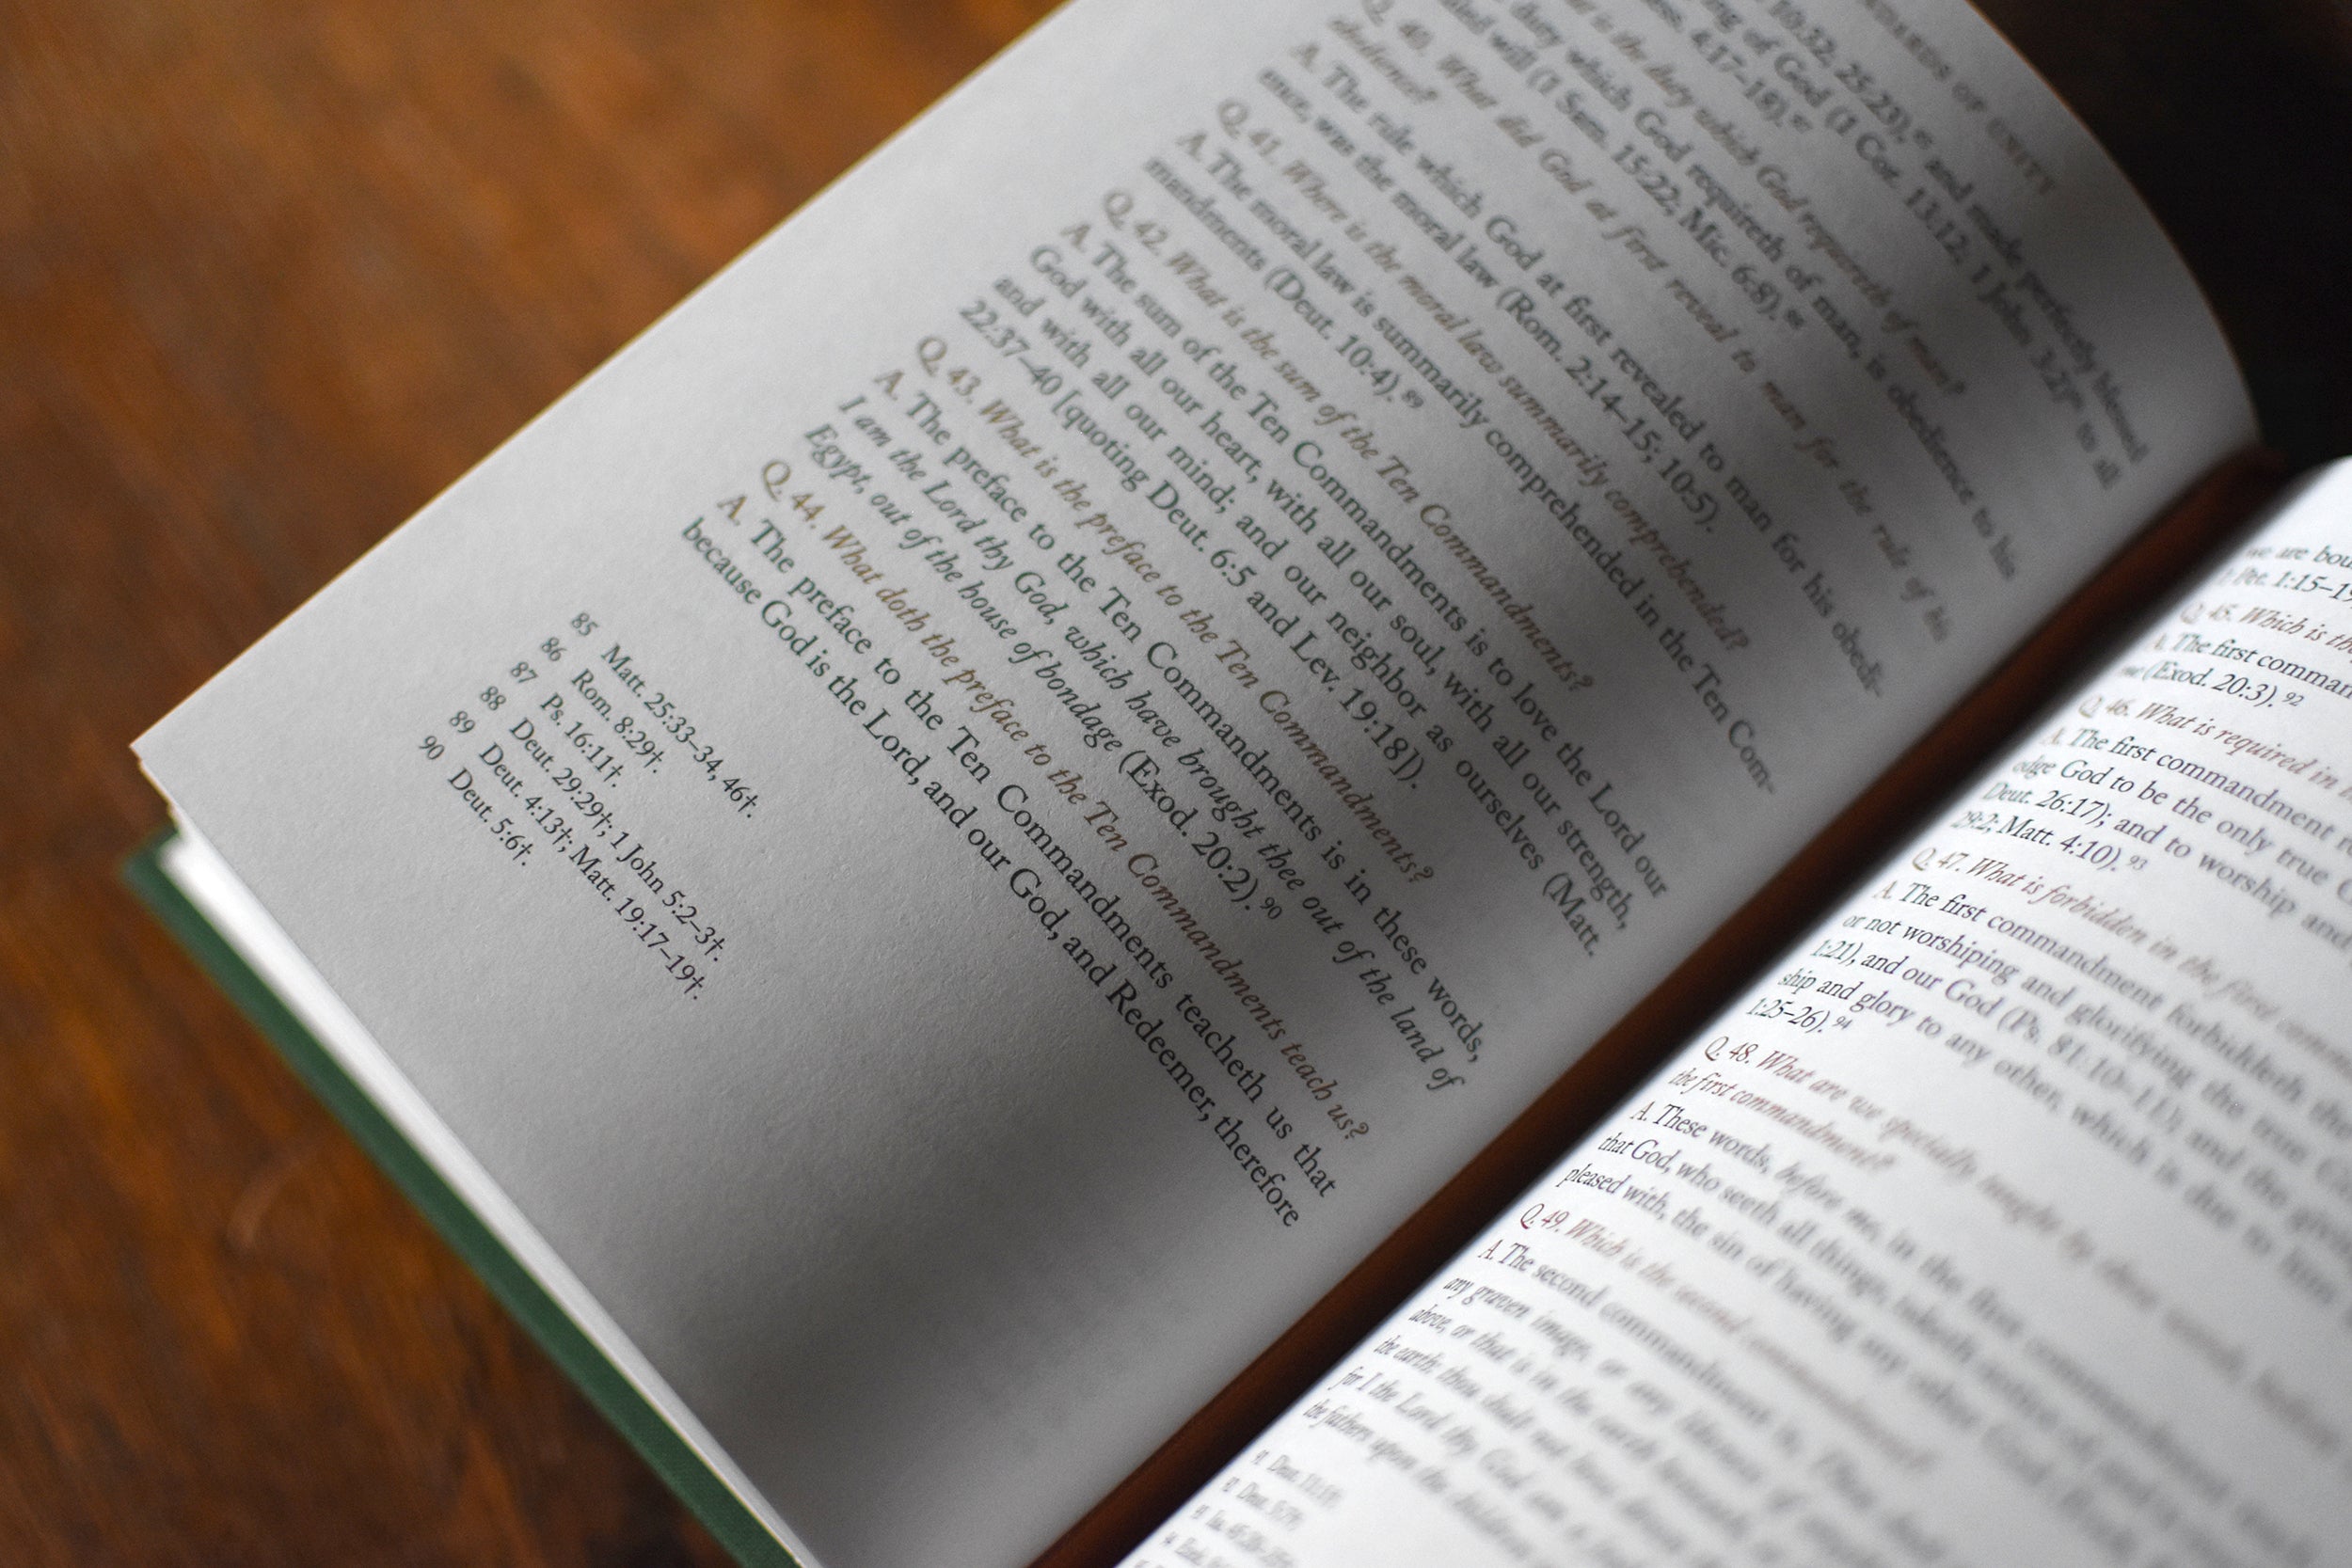 10:32, 25:23), and made perfectly blessed
ing of God (1 Cor. 13:12, 1 John 3:2) to all
4:17–18).
is the duty which God requireth of man?
they which God requireth of man, is obedience to his
will (1 Sam. 15:22, Mic. 6:8).
Q. 40. What did God at first reveal to man for the rule of his
obedience?
A. The rule which God at first revealed to man for his obedi-
ence, was the moral law (Rom. 2:14–15; 10:5).
Q. 41. Where is the moral law summarily comprehended?
A. The moral law is summarily comprehended in the Ten Com-
mandments (Deut. 10:4).89
Q. 42. What is the sum of the Ten Commandments?
A. The sum of the Ten Commandments is to love the Lord our
God with all our heart, with all our soul, with all our strength,
and with all our mind; and our neighbor as ourselves (Matt.
22:37–40 [quoting Deut. 6:5 and Lev. 19:18]).
Q. 43. What is the preface to the Ten Commandments?
A. The preface to the Ten Commandments is in these words,
I am the Lord thy God, which have brought thee out of the land of
Egypt, out of the house of bondage (Exod. 20:2).90
Q. 44. What doth the preface to the Ten Commandments teach us?
A. The preface to the Ten Commandments teacheth us that
because God is the Lord, and our God, and Redeemer, therefore
85 Matt. 25:33–34, 46†.
86 Rom. 8:29†.
87 Ps. 16:11†.
88 Deut. 29:29†; 1 John 5:2–3†.
89 Deut. 4:13†; Matt. 19:17–19†.
90 Deut. 5:6†.
we are bou
Pet. 1:15–1
Q. 45. Which is th
A. The first comman
me (Exod. 20:3).92
Q. 46. What is required in
A. The first commandment r
edge God to be the only true
Deut. 26:17); and to worship and
29:2; Matt. 4:10).93
Q. 47. What is forbidden in the first com
A. The first commandment forbiddeth the
or not worshiping and glorifying the true
1:21), and our God (Ps. 81:10–11); and the giv
ship and glory to any other, which is due to him
1:25–26).94
Q. 48. What are we specially taught by these words,
the first commandment?
A. These words, before me, in the first commandment
that God, who seeth all things, taketh notice of, and
pleased with, the sin of having any other God
Q. 49. Which is the second commandment?
A. The second commandment is, Thou shalt
any graven image, or any likeness of
above, or that is in the earth beneath,
the earth: thou shalt not bow down
for I the Lord thy God am a
the fathers upon the children